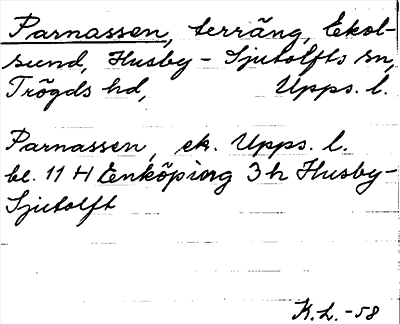 Parnassen, terräng, Ekol-
sund, Husby-Sjutolfts sn,
Trögds hd, Upps. l.
Parnassen, ek. Upps. l.
bl. 11 H Enköping 3 h Husby-
Sjutolft
K.L. -58